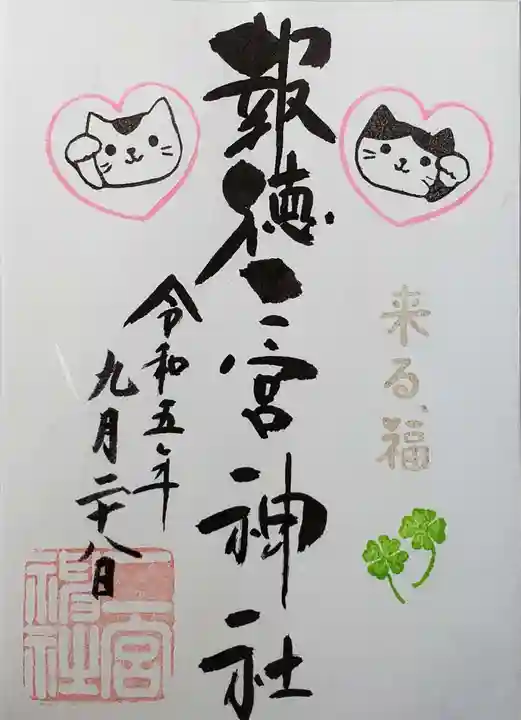 来る、福
報徳二宮神社
令和五年
九月二十八日
二宮
神社